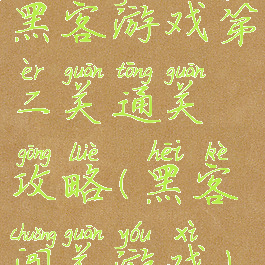 黑客游戏第
èr guān tōng guān
二关通关
gōng lüè hēi kè
攻略(黑客
chuǎng guān yóu xì
闯关游戏)